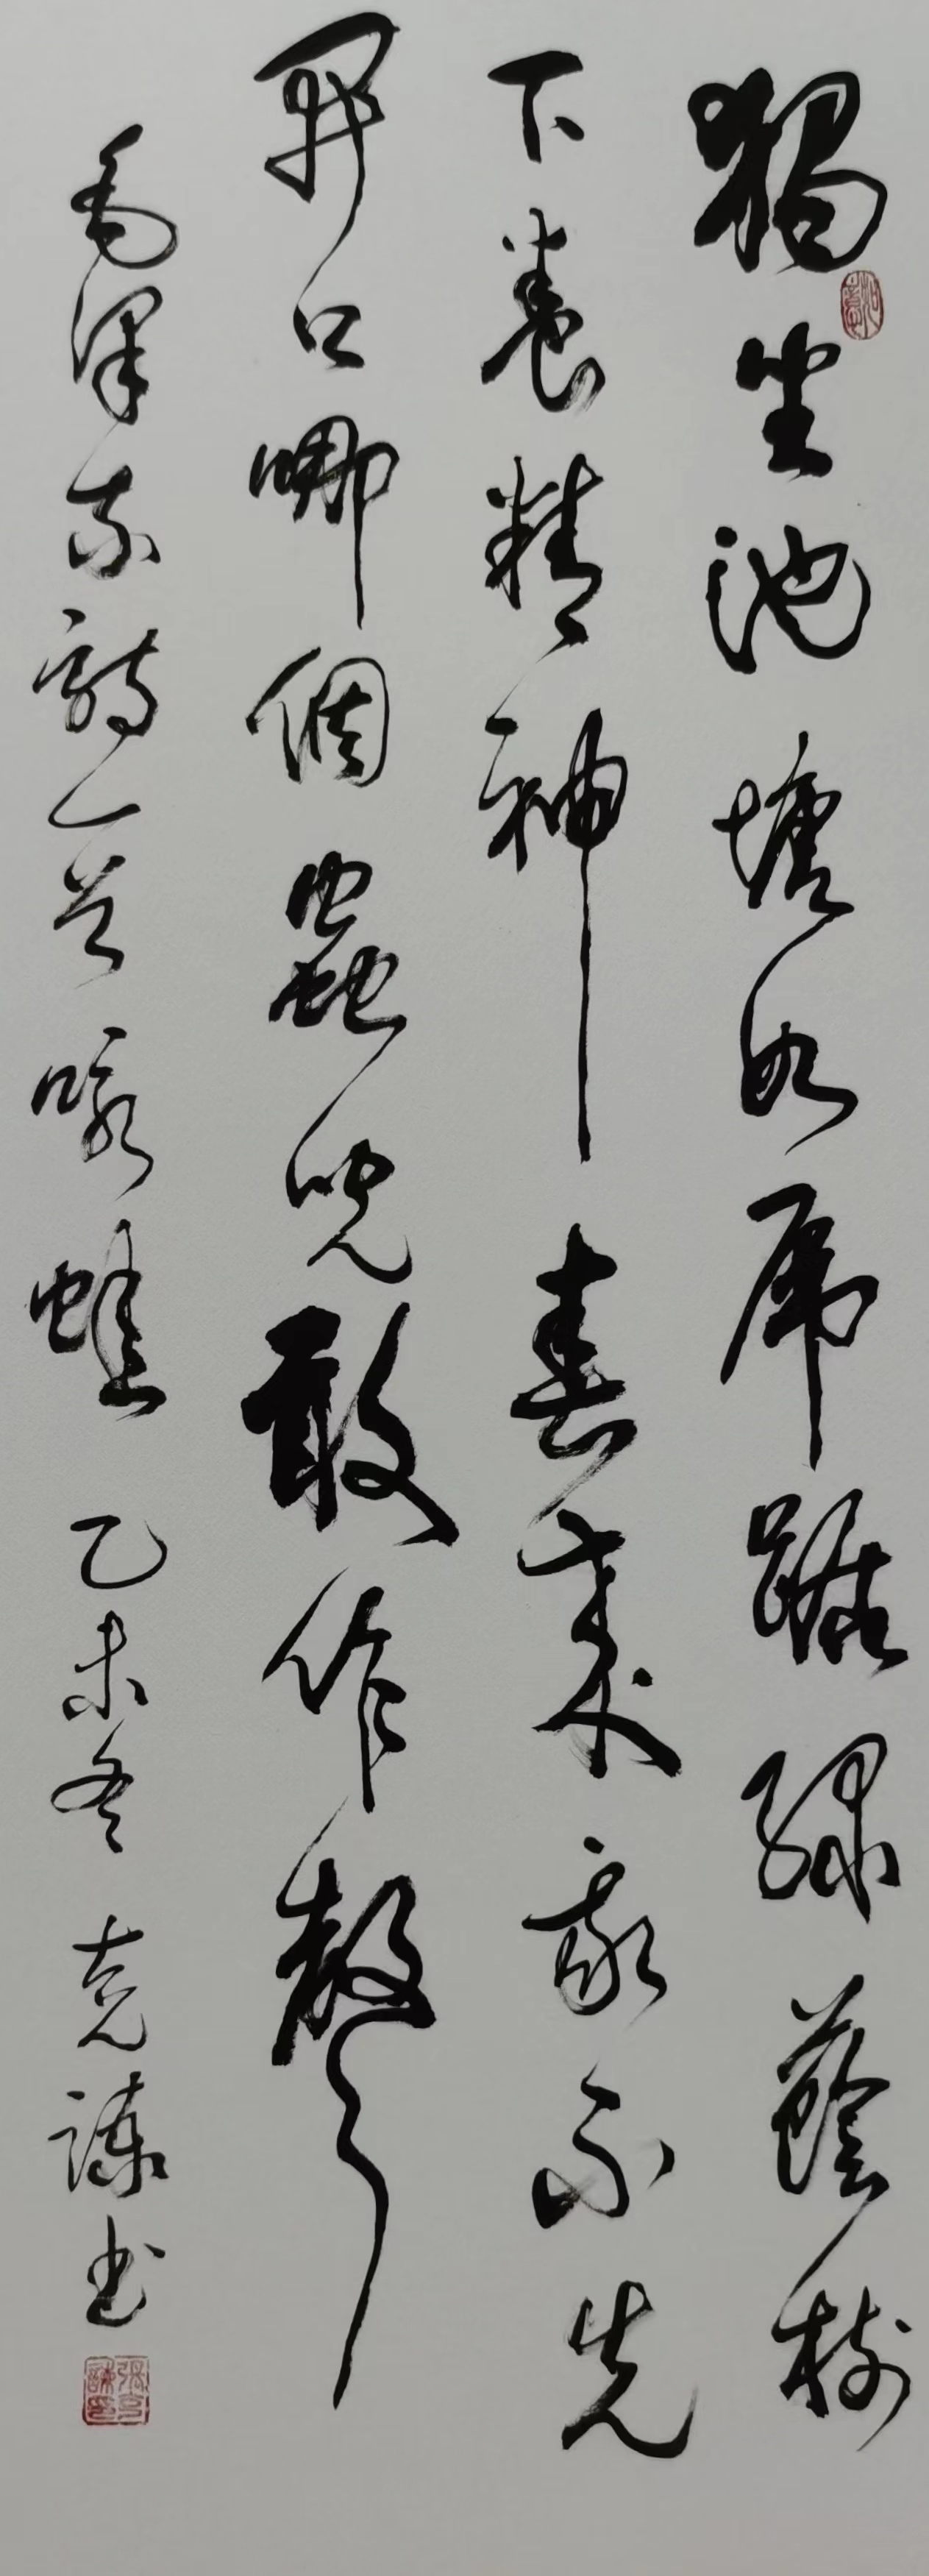 獨坐池塘如虎踞綠蔭樹
下養精神春來我不先
開口哪個蟲兒敢作聲
毛澤東詩一首詠蛙乙未冬克諫书